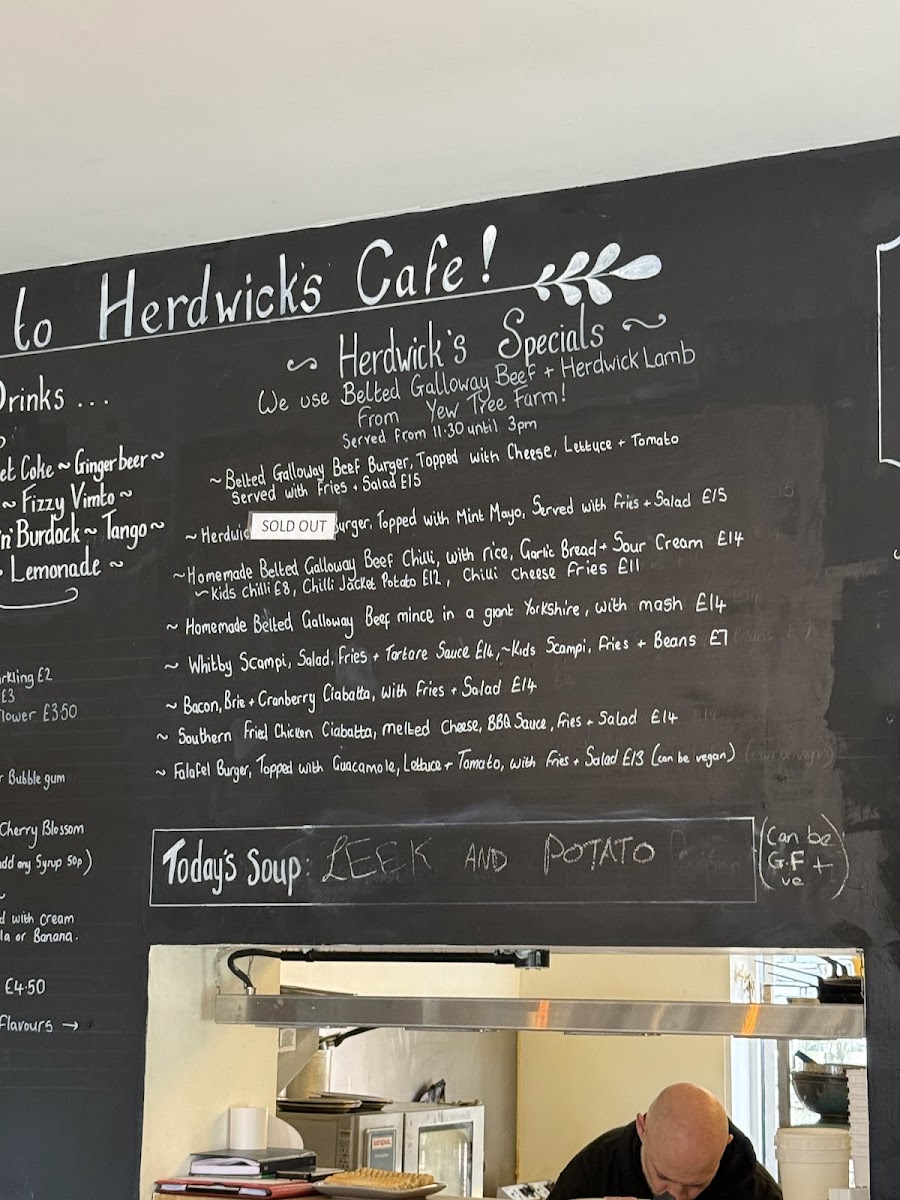 to Herdwick's Cafe!
Drinks ...
et Coke ~ Ginger beer ~
~ Fizzy Vimto ~
'n' Burdock ~ Tango ~
Lemonade ~
rkling £2
£3
lower £3.50
r Bubble gum
Cherry Blossom
add any Syrup 50p)
d with cream
la or Banana.
£4.50
flavours →
~ Herdwick's Specials ~
We use Belted Galloway Beef + Herdwick Lamb
From Yew Tree Farm!
Served from 11.30 until 3pm
~ Belted Galloway Beef Burger, Topped with Cheese, Lettuce + Tomato
Served with Fries + Salad £15
~ Herdwic SOLD OUT urger, Topped with Mint Mayo, Served with Fries + Salad £15
~ Homemade Belted Galloway Beef Chilli, with rice, Garlic Bread + Sour Cream £14
~ Kids chilli £8, Chilli Jacket Potato £12, Chilli cheese fries £11
~ Homemade Belted Galloway Beef mince in a giant Yorkshire, with mash £14
~ Whitby Scampi, Salad, Fries + Tartare Sauce £14, ~ Kids Scampi, Fries + Beans £7
~ Bacon, Brie + Cranberry Ciabatta, with Fries + Salad £14
~ Southern Fried Chicken Ciabatta, melted Cheese, BBQ Sauce, fries + Salad £14
~ Falafel Burger, Topped with Guacamole, Lettuce + Tomato, with Fries + Salad £13 (can be vegan)
Today's Soup: LEEK AND POTATO
(can be
G.F +
ve)
RATIONAL